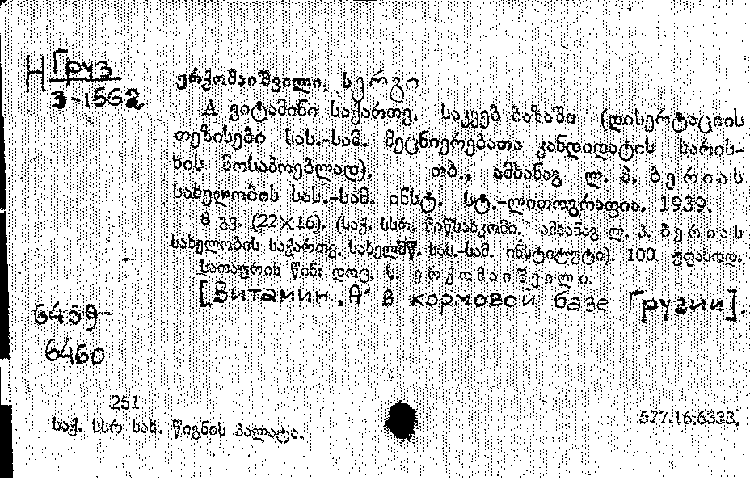 Н Груз
3-1562
ერქომაიშვილი, სერგო
A ვიტამინი საქართვ. საკვებ ბაზაში (დისერტაციის
თეზისები სას.-სამ. მეცნიერებათა კანდიდატის ხარის-
ხის მოსაპოებლად). თბ., ამხანაგ ლ. პ. ბერიას
სახელობის სას.-სამ. ინსტ. სტ.-ლითოგრაფია, 1939.
8 გვ. (22×16). (საქ. სსრ. მიწსახკომი. ამხანაგ ლ. პ. ბერიას
სახელობის საქართვ. სახელმწ. სას.-სამ. ინსტიტუტი). 100 ც. უფასოდ.
სათაურის წინ: დოც. ს. ერქომაიშვილი.
[Витамин "А" в кормовой базе Грузии].
6459-
6460
251
საქ. სსრ სახ. წიგნის პალატა.
577.16:6333.